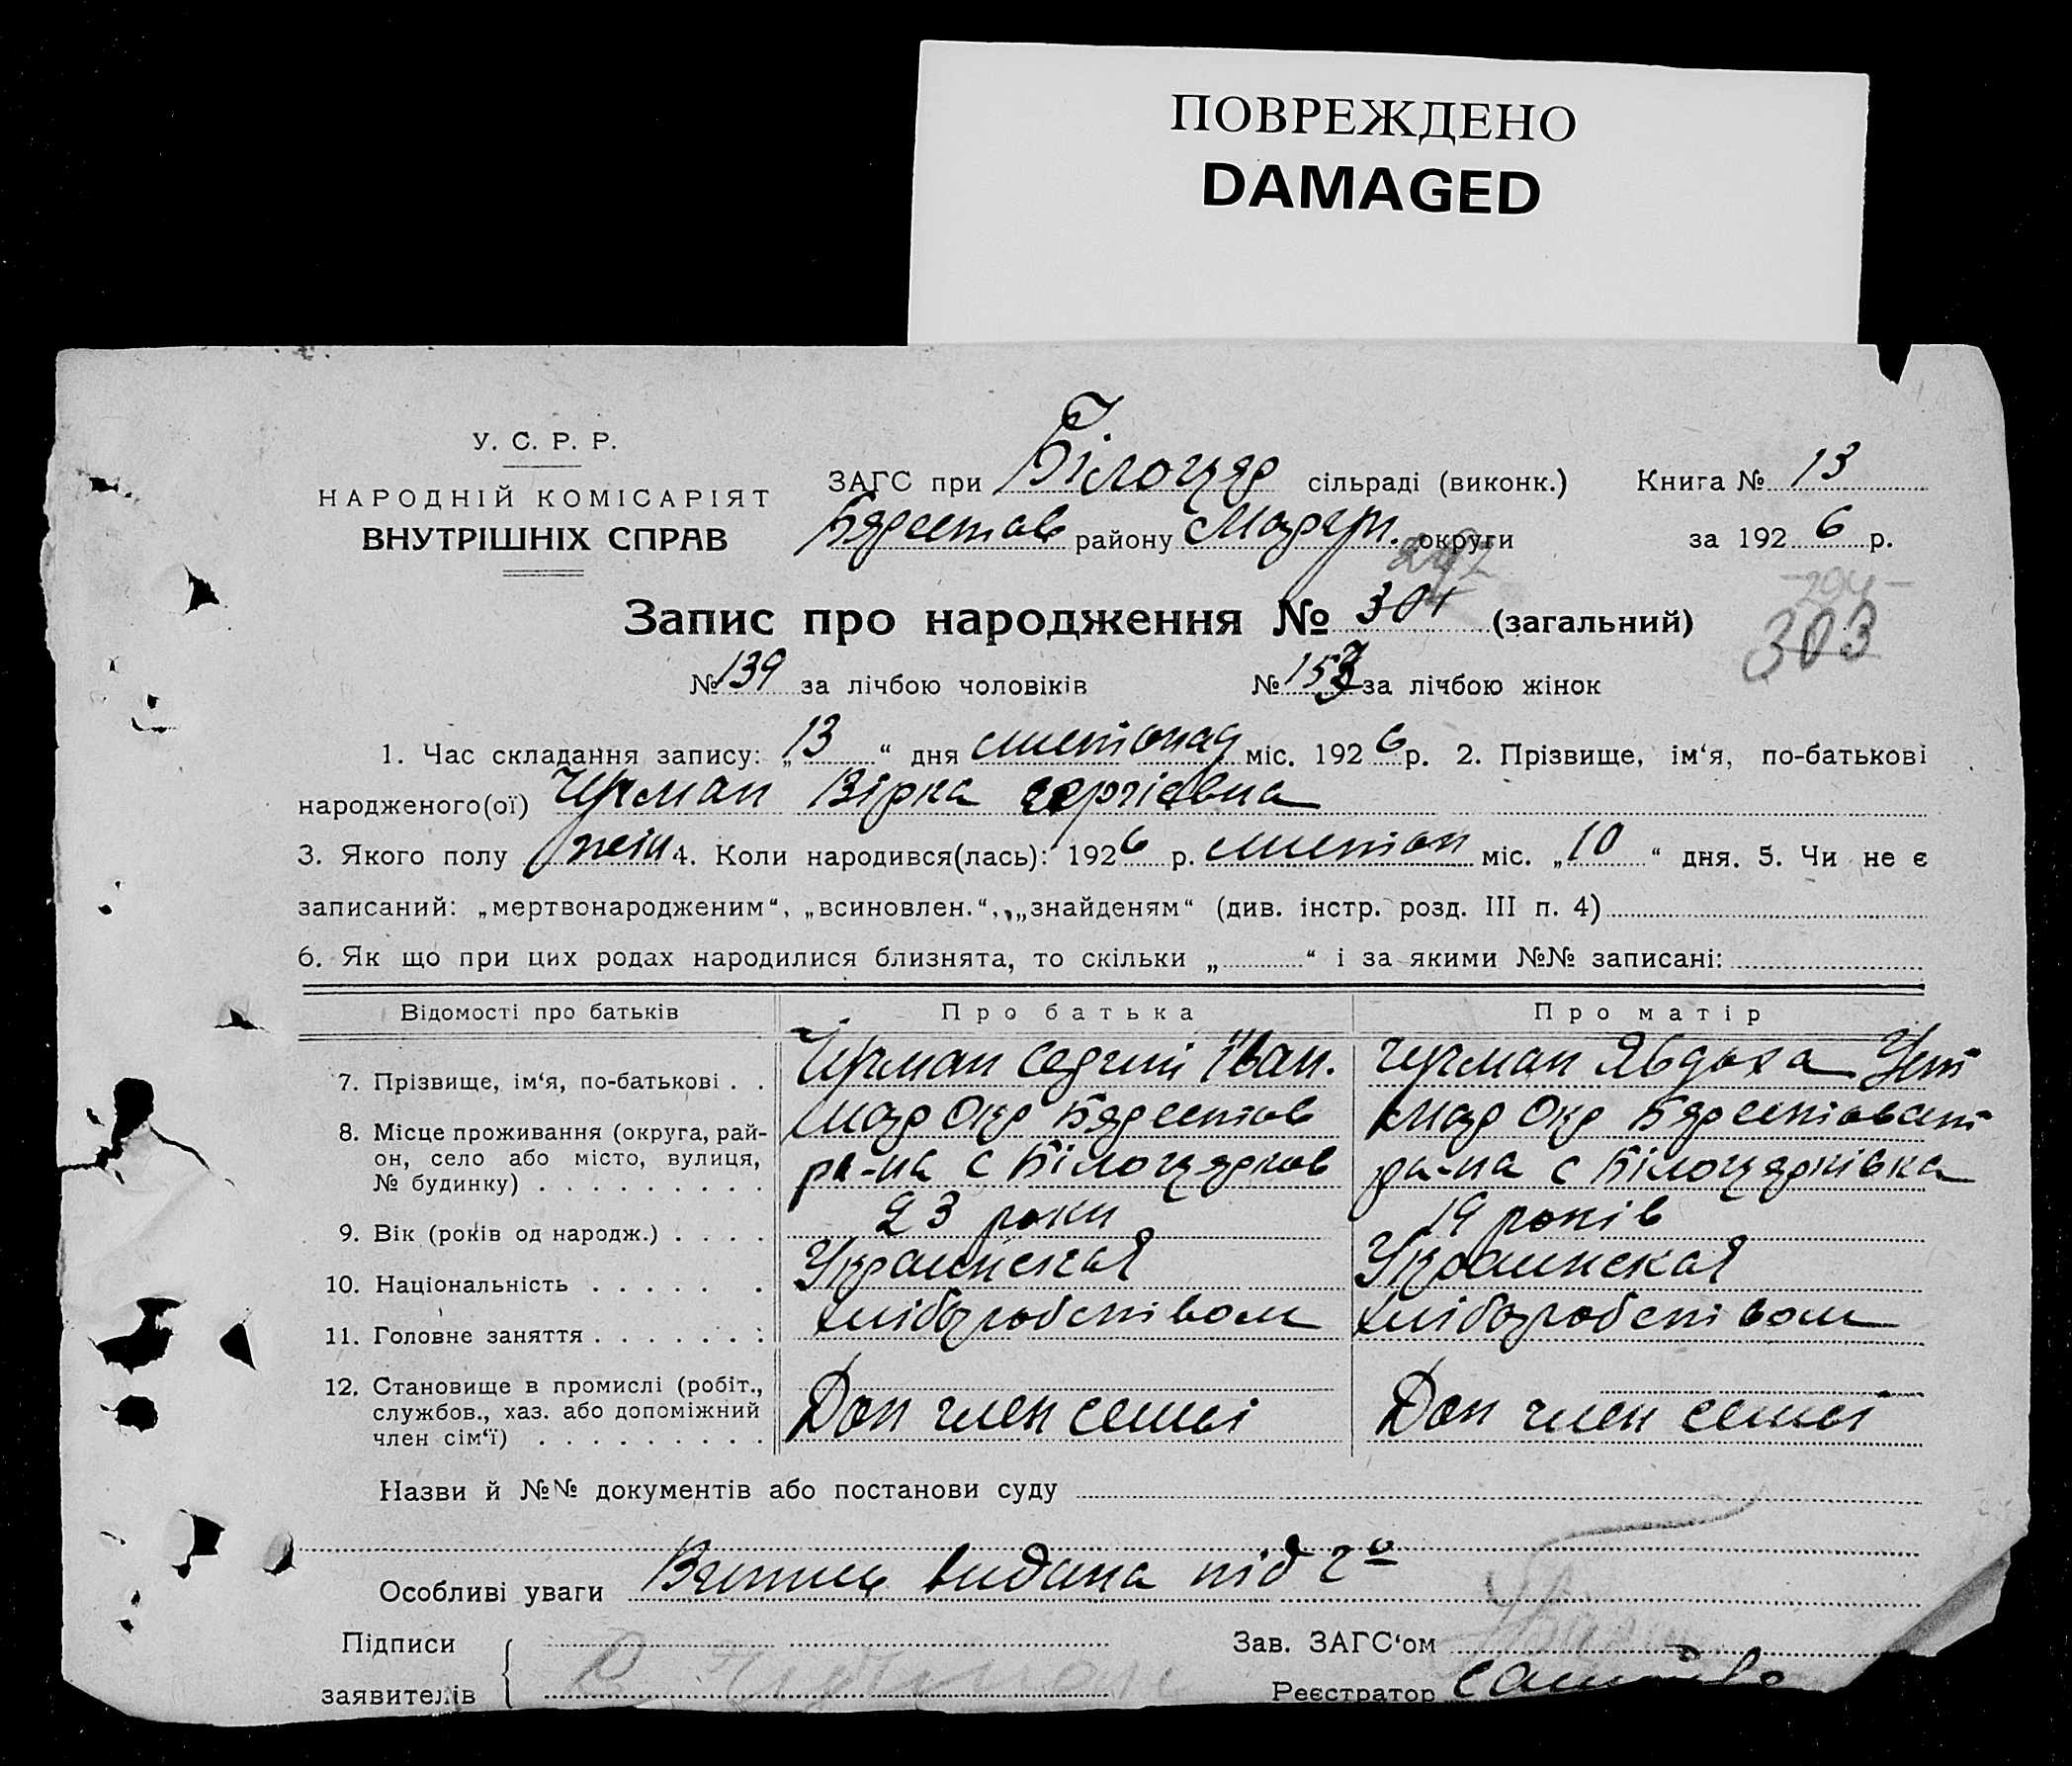 ПОВРЕЖДЕНО
DAMAGED
У. С. Р. Р.
НАРОДНІЙ КОМІСАРІЯТ
ВНУТРІШНІХ СПРАВ
ЗАГС при Білоцер сільраді (виконк.) Книга № 13
району округи за 1926 р.
292
Запис про народження № 301 (загальний)
303
№ 139 за лічбою чоловіків № 153 за лічбою жінок
1. Час складання запису: „13“ дня листопад міс. 1926 р. 2. Прізвище, ім‘я, по-батькові
народженого(ої) Вірка
3. Якого полу жін 4. Коли народився(лась): 1926 р. листоп міс. „10“ дня. 5. Чи не є
записаний: „мертвонародженим“, „всиновлен.“, „знайденям“ (див. інстр. розд. III п. 4)
6. Як що при цих родах народилися близнята, то скільки „ “ і за якими №№ записані:
Відомості про батьків Про батька Про матір
7. Прізвище, ім‘я, по-батькові . . Іван. Явдоха Уст
8. Місце проживання (округа, рай-
он, село або місто, вулиця,
№ будинку) . . . . . . . . .
Окр Окр
ра-на с Білоцерков ра-на с Білоцерківка
9. Вік (років од народж.) . . . . 23 роки 19 років
10. Національність . . . . . . Украинская Украинская
11. Головне заняття . . . . . . . хліборобством хліборобством
12. Становище в промислі (робіт.,
службов., хаз. або допоміжний
член сім‘ї) . . . . . . . . .
Доп член семьі Доп член семьі
Назви й №№ документів або постанови суду
Особливі уваги видана під
Підписи Зав. ЗАГС‘ом
заявителів Реєстратор